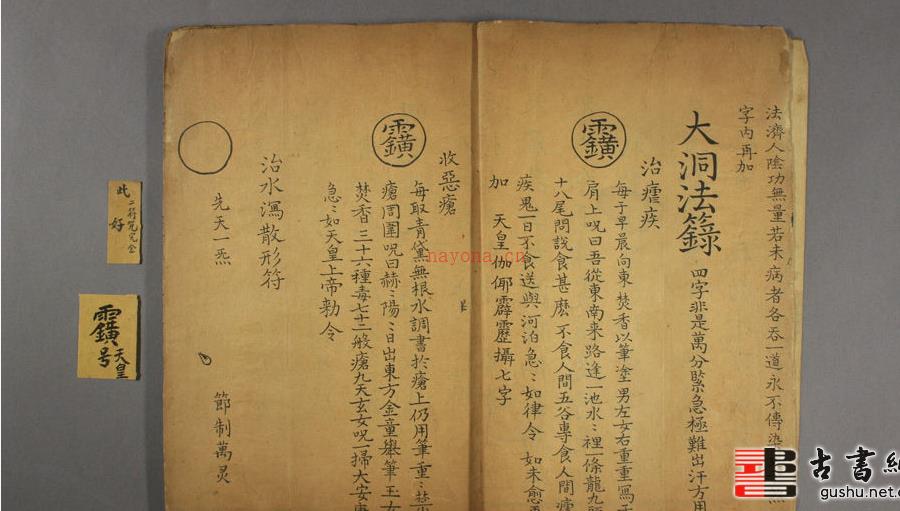 法濟人陰功無量若未病者各吞一道永不傳染
字內再加
大洞法籙 四字非是萬分緊急極難出汗方用
治瘧疾
每于早晨向東焚香以筆塗男左女右重重寫于
肩上呪曰吾從東南来路逢一池水〻裡一條龍九頭
十八尾問說食甚麽不食人間五谷專食人間瘧
疾鬼一日不食送與河泊急〻如律令 如未愈再
加 天皇伽㖿霹靂攝七字
收惡瘡
每取青黛無根水調書於瘡上仍用筆重〻
瘡周圍呪曰赫〻陽〻日出東方金童舉筆玉女
焚香三十六種毒七十二般瘡九天玄女呪一掃大安康
急〻如天皇上帝勅令
治水瀉散形符
先天一炁
節制萬灵
此二符
好
天皇
号
nayona.cn
古書
gushu.net